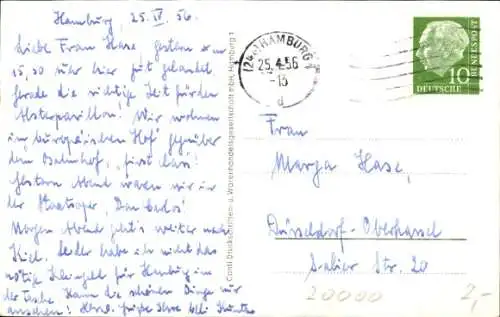 Hamburg, 25. IV. 56.
Liebe Frau Hase, gestern um
15,30 Uhr hier gut gelandet.
Gerade die richtige Zeit für den
Alsterpavillon! Wir wohnen
im „Europäischen Hof" gegenüber
dem Bahnhof, „first class!
Gestern Abend waren wir in
der Staatsoper, „Don Carlos"
Morgen Abend geht's weiter nach
Kiel. Leider habe ich nicht das
nötige Kleingeld für Hamburg in
der Tasche. Kann die schönen Dinge nur
ansehen! Herzl. Grüße Ihre
Conti Druckschriften- u. Warenhandelsgesellschaft mbH, Hamburg 1
(24a) HAMBURG
25.4.56
-13
d
10
DEUTSCHE
BUNDESPOST
Frau
Marga Hase,
Düsseldorf-Oberkassel
Salier Str. 20
20000
2,-